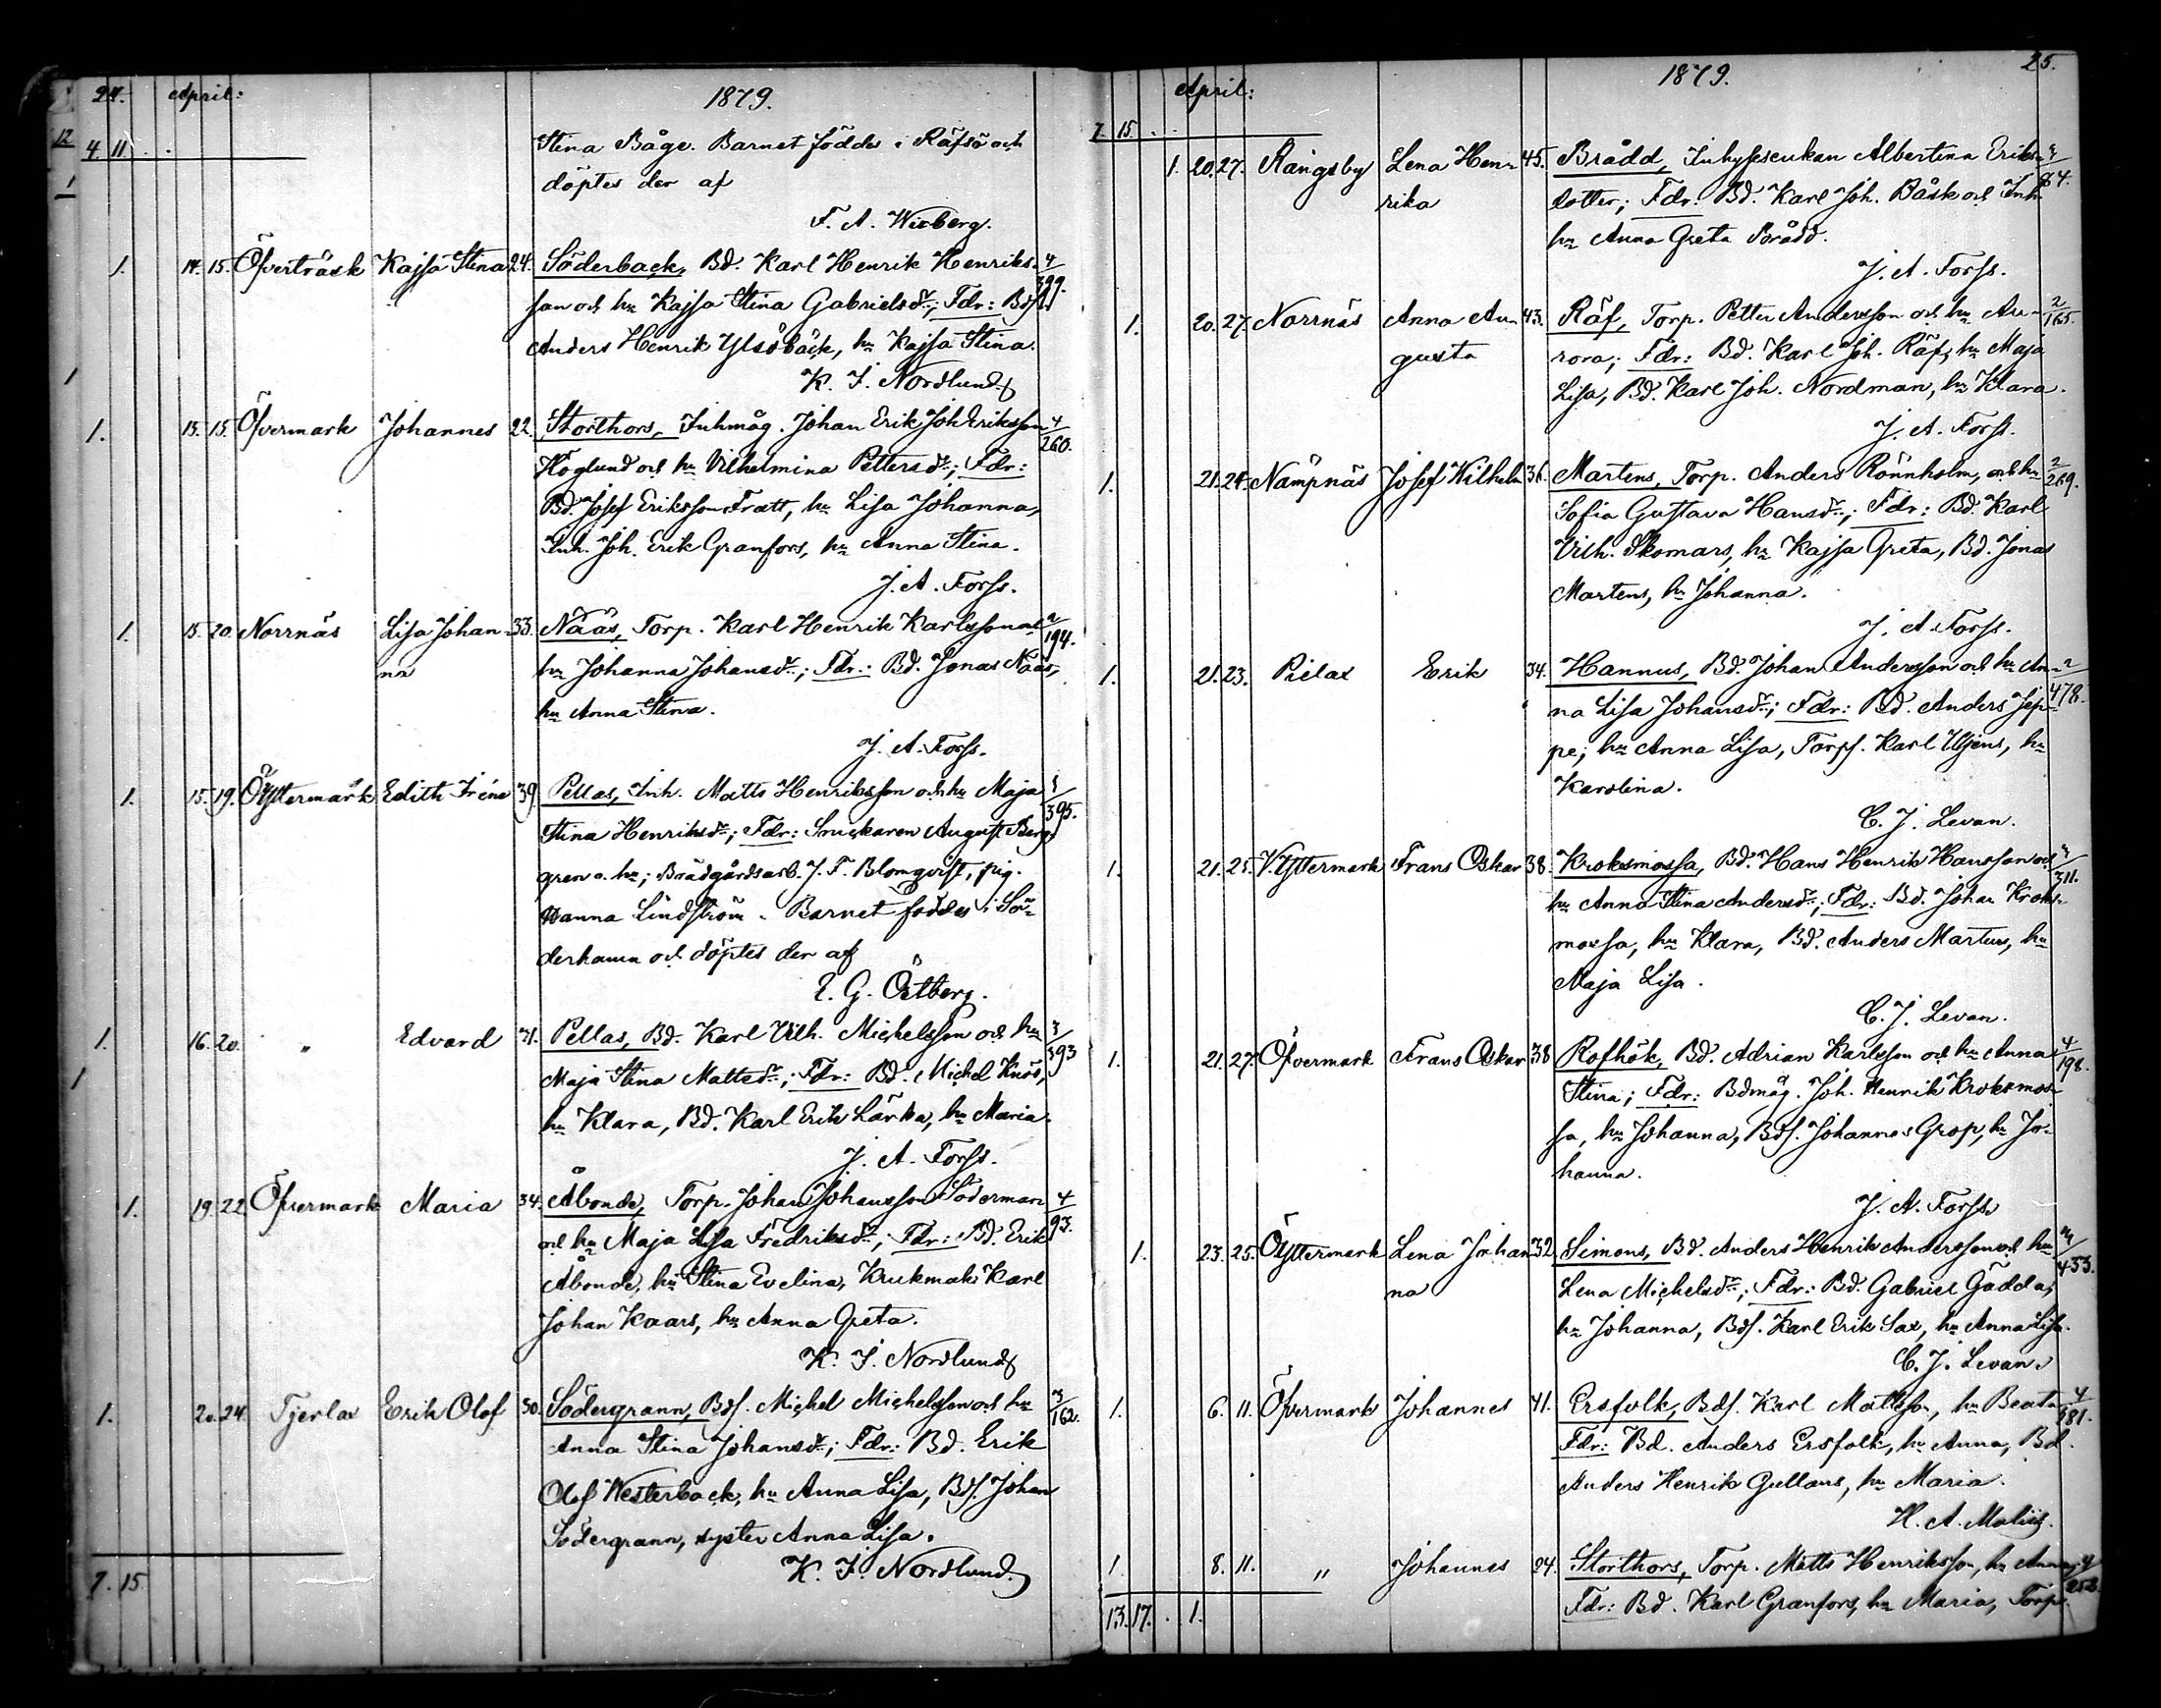 24. April: 1879.
12
4. 11. Stina Båge. Barnet föddes i Räfsö och
1 döptes der af
F. A. Wieberg.
1. 14. 15. Öfverträsk Kajsa Stina 24. Söderback, Bd. Karl Henrik Henriks- 4/399.
son och hu Kajsa Stina Gabrielsdr; Fdr: Bdf.
Anders Henrik Ylsöbäck, hu Kajsa Stina.
1 K. J. Nordlund
1. 15. 15. Öfvermark Johannes 22. Storthors, Inhmåg. Johan Erik Joh Eriksson 4/260.
Höglund och hu Vilhelmina Pettersdr; Fdr:
Bd. Josef Eriksson Fratt, hu Lisa Johanna,
Inh. Joh. Erik Granfors, hu Anna Stina.
J. A. Forss.
1. 15. 20. Norrnäs Lisa Johan- 33. Nääs, Torp. Karl Henrik Karlsson och 2/194.
na hu Johanna Johansdr; Fdr: Bd. Jonas Nääs,
hu Anna Stina.
J. A. Forss.
1. 15. 19. ÖYttermark Edith Iréne 39. Pellas, Inh. Matts Henriksson och hu Maja 3/395.
Stina Henriksdr; Fdr: Snickaren August Berg-
gren o. hu; Brädgårdsarb. J. F. Blomqvist, pig.
Hanna Lindström. Barnet föddes i Sö-
derhamn och döptes der af
E. G. Östberg.
1. 16. 20. " Edvard 31. Pellas, Bd. Karl Vilh. Michelsson och hu 3/393
1 Maja Stina Mattsdr; Fdr: Bd. Michel Knös,
hu Klara, Bd. Karl Erik Lärka, hu Maria.
J. A. Forss.
1. 19. 22. Öfvermark Maria 34. Åbonde, Torp. Johan Johansson Söderman 4/93.
och hu Maja Lisa Fredriksdr; Fdr: Bd. Erik
Åbonde, hu Stina Evelina, Krukmak. Karl
Johan Kaars, hu Anna Greta.
K. J. Nordlund
1. 20. 24. Tjerlax Erik Olof 30. Södergrann, Bdf. Michel Michelsson och hu 3/162.
Anna Stina Johansdr; Fdr: Bd. Erik
Olof Westerback, hu Anna Lisa, Bdf. Johan
Södergrann, syster Anna Lisa.
K. J. Nordlund.
7. 15.
April: 1879. 25.
7. 15.
1. 20. 27. Rångsby Lena Hen- 45. Brådd, Inhyseseukan Albertina Eriks- 84.
rika dotter; Fdr: Bd. Karl Joh. Båsk och Inh
hu Anna Greta Brådd.
J. A. Forss.
1. 20. 27. Norrnäs Anna Au- 43. Räf, Torp. Petter Andersson och hu Au- 2/165.
gusta rora; Fdr: Bd. Karl Joh. Räf, hu Maja
Lisa, Bd. Karl Joh. Nordman, hu Klara.
J. A. Forss.
1. 21. 24. Nämpnäs Josef Wilhelm 36. Martens, Torp. Anders Rönnholm, och hu 2/269.
Sofia Gustava Hansdr; Fdr: Bd. Karl
Vilh. Skomars, hu Kajsa Greta, Bd. Jonas
Martens, hu Johanna.
J. A. Forss.
1. 21. 23. Pielax Erik 34. Hannus, Bd. Johan Andersson och hu An- 2/478.
na Lisa Johansdr; Fdr: Bd. Anders Jep-
pe; hu Anna Lisa, Torpf. Karl Utjens, hu
Karolina.
C. J. Levan.
1. 21. 25. V.Yttermark Frans Oskar 38. Kroksmossa, Bd. Hans Henrik Hansson och 3/311.
hu Anna Stina Andersdr; Fdr: Bd. Johan Kroks-
mossa, hu Klara, Bd. Anders Martens, hu
Maja Lisa.
C. J. Levan.
1. 21. 27. Öfvermark Frans Oskar 38 Rofhök, Bd. Adrian Karlsson och hu Anna 4/198.
Stina; Fdr: Bdmåg. Joh. Henrik Kroksmos-
sa, hu Johanna, Bdf. Johannes Grop, hu Jo-
hanna.
J. A. Forss.
1. 23. 25. ÖYttermark Lena Johan- 32. Simons, Bd. Anders Henrik Andersson och hu 3/433.
na Lena Michelsdr; Fdr: Bd. Gabriel Gädda,
hu Johanna, Bdf. Karl Erik Sax, hu Anna Lisa.
C. J. Levan.
1. 6. 11. Öfvermark Johannes 41. Ersfolk, Bdf. Karl Mattsson, hu Beata 4/181.
Fdr: Bd. Anders Ersfolk, hu Anna, Bd.
Anders Henrik Gullans, hu Maria.
H. A. Malin.
1 8. 11. " Johannes 24. Storthors, Torp. Matts Henriksson, hu Anna; 4/252.
Fdr: Bd. Karl Granfors, hu Maria, Torp.
13. 17. 1.